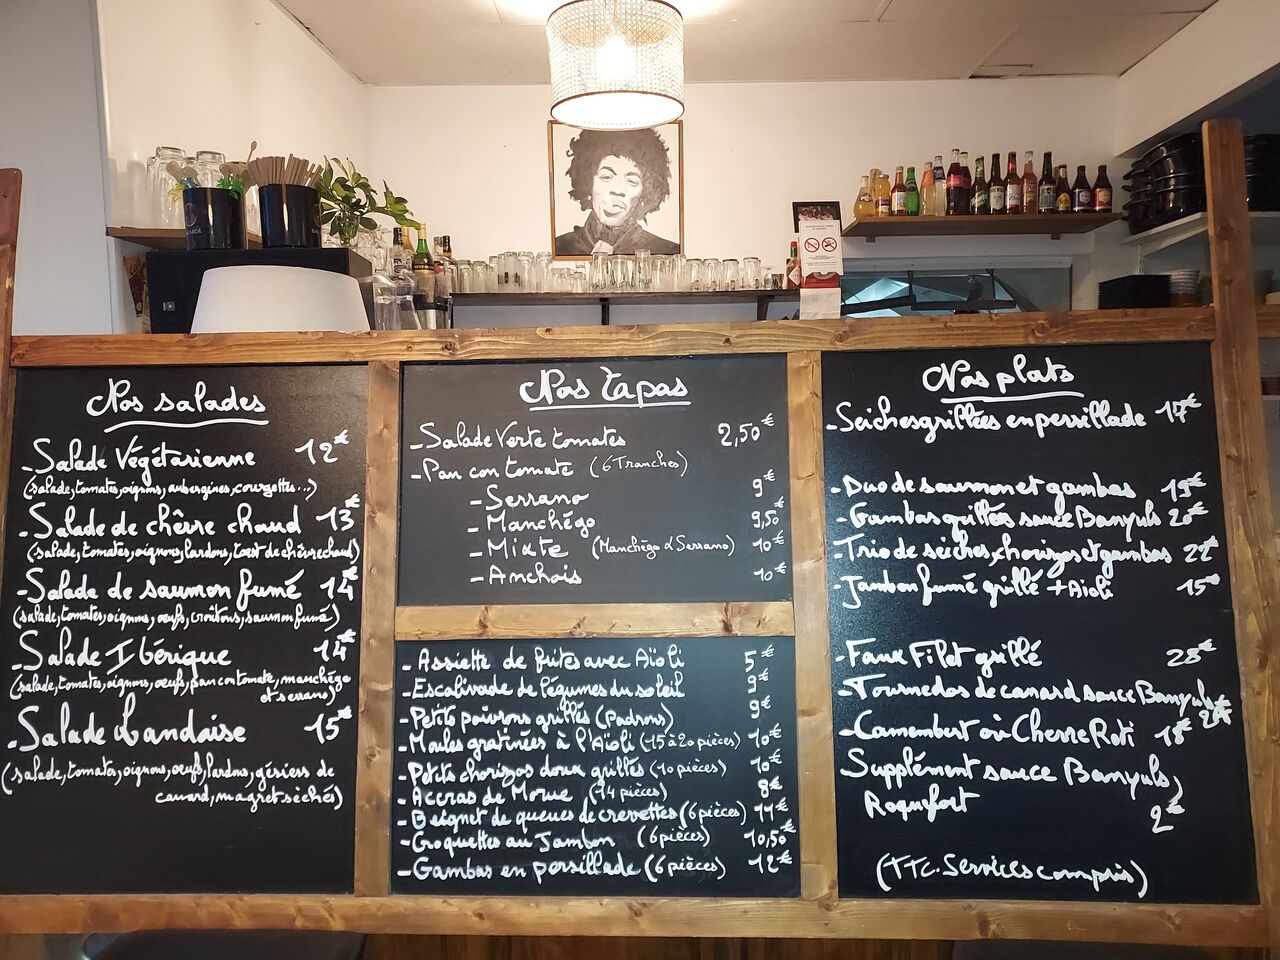 Nos salades
-Salade Végétarienne 12€
(salade, tomates, oignons, aubergines, courgettes...)
-Salade de chèvre chaud 13€
(salade, tomates, oignons, lardons, toast de chèvre chaud)
-Salade de saumon fumé 14€
(salade, tomates, oignons, oeufs, croûtons, saumon fumé)
-Salade Ibérique 14€
(salade, tomates, oignons, oeufs, pan con tomate, manchégo
et serrano)
-Salade Landaise 15€
(salade, tomates, oignons, oeufs, lardons, gésiers de
canard, magret séchés)
Nos tapas
-Salade Verte tomates 2,50€
-Pan con tomate (6 Tranches)
-Serrano 9€
-Manchégo 9,50€
-Mixte (Manchégo & Serrano) 10€
-Anchois 10€
-Assiette de frites avec Aïoli 5€
-Escalivade de légumes du soleil 9€
-Petits poivrons grillés (Padrons) 9€
-Moules gratinées à l'Aïoli (15 à 20 pièces) 10€
-Petits chorizos doux grillés (10 pièces) 10€
-Accras de Morue (14 pièces) 8€
-Beignet de queues de crevettes (6 pièces) 11€
-Croquettes au Jambon (6 pièces) 10,50€
-Gambas en persillade (6 pièces) 12€
Nos plats
-Seiches grillées en persillade 17€
-Duo de saumon et gambas 19€
-Gambas grillées sauce Banyuls 20€
-Trio de seiches, chorizos et gambas 22€
-Jambon fumé grillé + Aïoli 15€
-Faux Filet grillé 28€
-Tournedos de canard sauce Banyuls
-Camembert où Chèvre Roti 18€
Supplément sauce Banyuls,
Roquefort 2€
(TTC. Services compris)